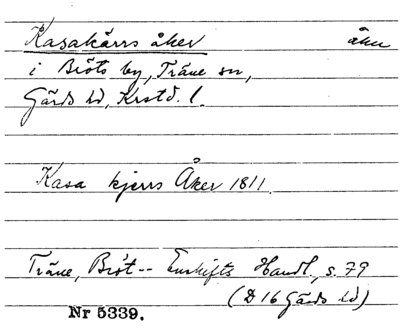 Kasakärrs åker åker
i Bröts by, Träne sn,
Gärds hd, Krstd. l.
Kasa kjerrs Åker 1811
Träne, Bröt -- Enskifts Handl., s. 79
(D 16 Gärds hd)
Nr 5339.